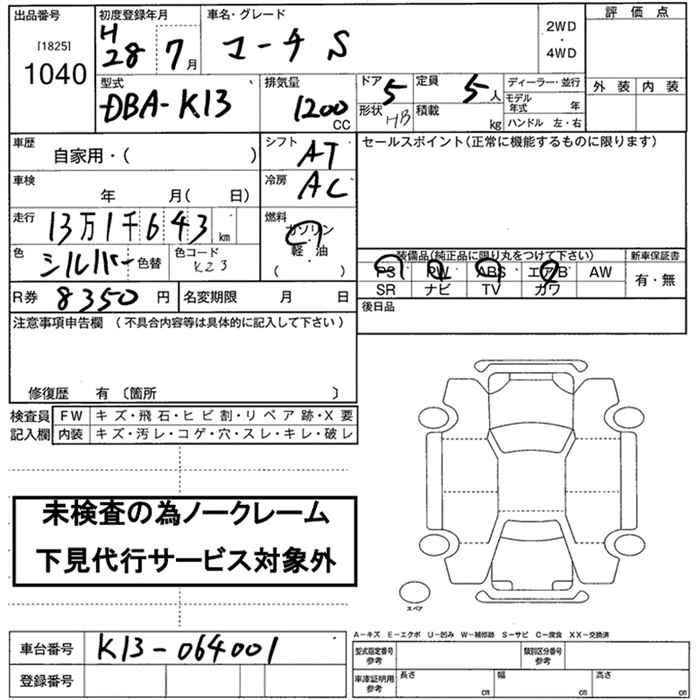 出品番号 初度登録年月 車名・グレード 評価点
[1825] 1040 H 28 7月 マーチ S 2WD・4WD
型式 DBA-K13 排気量 1200 CC ドア 5 形状 HB 定員 5人 積載 kg ディーラー・並行 モデル年式 年 ハンドル 左・右 外装 内装
車歴 自家用・( ) シフト AT セールスポイント(正常に機能するものに限ります)
車検 年 月( 日) 冷房 AC
走行 13万1千643 km 燃料 ガソリン 軽・油 ( )
色 シルバー 色替 色コード K23 装備品(純正品に限り丸をつけて下さい) 新車保証書
PS PW ABS エアB AW 有・無
SR ナビ TV カワ
R券 8350 円 名変期限 月 日 後日品
注意事項申告欄 (不具合内容等は具体的に記入して下さい)
修復歴 有 〔箇所 〕
検査員記入欄 FW キズ・飛石・ヒビ割・リペア跡・X要
内装 キズ・汚レ・コゲ・穴・スレ・キレ・破レ
未検査の為ノークレーム
下見代行サービス対象外
スペア
A-キズ E-エクボ U-凹み W-補修跡 S-サビ C-腐食 XX-交換済
車台番号 K13-064001 型式指定番号 参考 類別区分番号 参考
登録番号 車庫証明用 参考 長さ cm 幅 cm 高さ cm